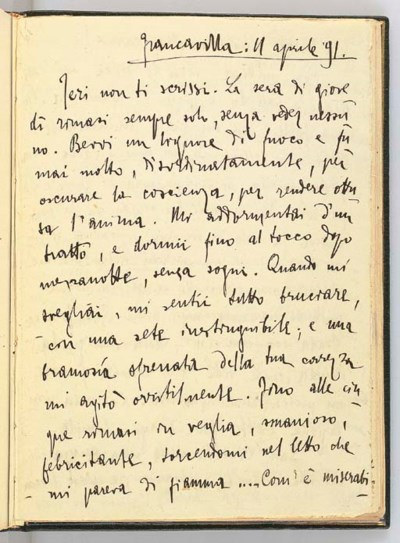 Francavilla: 11 aprile '91.
Ieri non ti scrissi. La sera di giove
dì rimasi sempre solo, senza veder nessu
no. Bevvi un liquore di fuoco e fu
mai molto, disordinatamente, per
oscurare la coscienza, per rendere ottu
sa l'anima. Mi addormentai d'un
tratto, e dormii fino al tocco dopo
mezzanotte, senza sogni. Quando mi
svegliai, mi sentii tutto bruciare,
con una sete inestinguibile; e una
bramosía sfrenata della tua carezza
mi agitò orribilmente. Fino alle cin
que rimasi in veglia, smanioso,
febricitante, torcendomi nel letto che
mi pareva di fiamma .... Com' è miserabi-